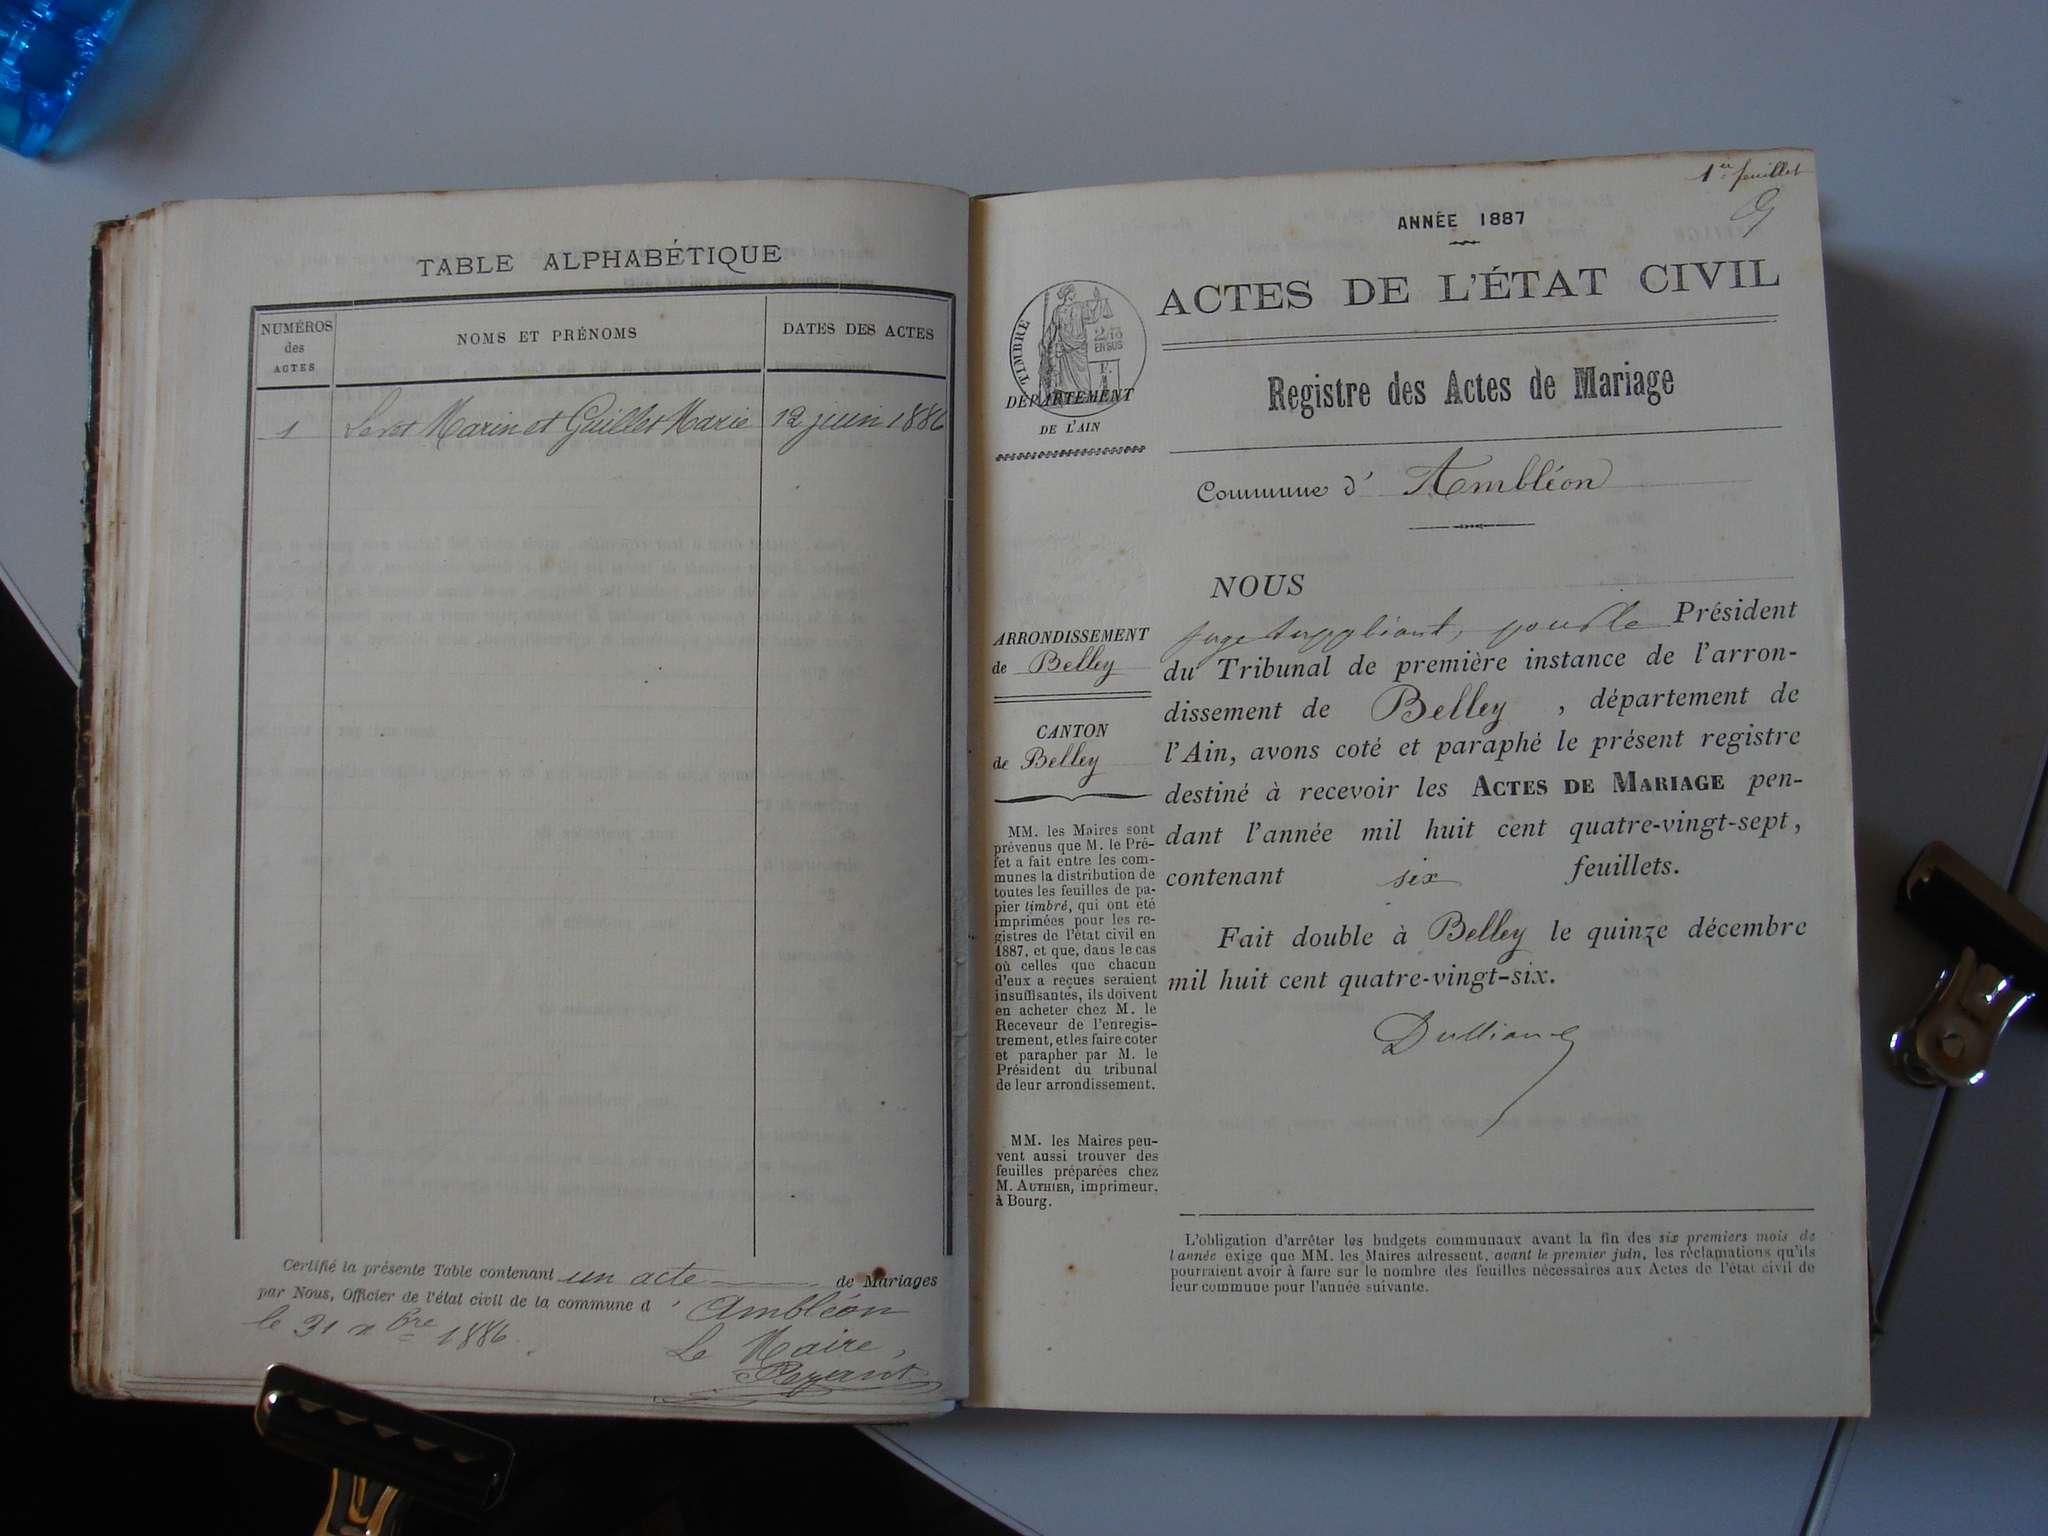 TABLE ALPHABÉTIQUE
NUMÉROS des ACTES
NOMS ET PRÉNOMS
DATES DES ACTES
1 Levet Marin et Guillet Marie 12 juin 1886
Certifié la présente Table contenant un acte de Mariages
par Nous, Officier de l'état civil de la commune d' Ambléon
le 31 Xbre 1886.
Le Maire,
1er feuillet
ANNÉE 1887
ACTES DE L'ÉTAT CIVIL
TIMBRE
2/10
EN SUS
DÉPARTEMENT
DE L'AIN
Registre des Actes de Mariage
Commune d' Ambléon
ARRONDISSEMENT
de Belley
CANTON
de Belley
MM. les Maires sont
prévenus que M. le Pré-
fet a fait entre les com-
munes la distribution de
toutes les feuilles de pa-
pier timbré, qui ont été
imprimées pour les re-
gistres de l'état civil en
1887, et que, dans le cas
où celles que chacun
d'eux a reçues seraient
insuffisantes, ils doivent
en acheter chez M. le
Receveur de l'enregis-
trement, et les faire coter
et parapher par M. le
Président du tribunal
de leur arrondissement.
MM. les Maires peu-
vent aussi trouver des
feuilles préparées chez
M. AUTHIER, imprimeur,
à Bourg.
NOUS
juge suppléant, pour le Président
du Tribunal de première instance de l'arron-
dissement de Belley, département de
l'Ain, avons coté et paraphé le présent registre
destiné à recevoir les ACTES DE MARIAGE pen-
dant l'année mil huit cent quatre-vingt-sept,
contenant six feuillets.
Fait double à Belley le quinze décembre
mil huit cent quatre-vingt-six.
L'obligation d'arrêter les budgets communaux avant la fin des six premiers mois de
l'année exige que MM. les Maires adressent, avant le premier juin, les réclamations qu'ils
pourraient avoir à faire sur le nombre des feuilles nécessaires aux Actes de l'état civil de
leur commune pour l'année suivante.